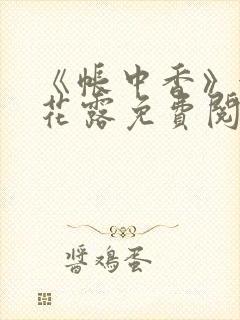 《帐中香》
花露免费阅
酱鸡蛋